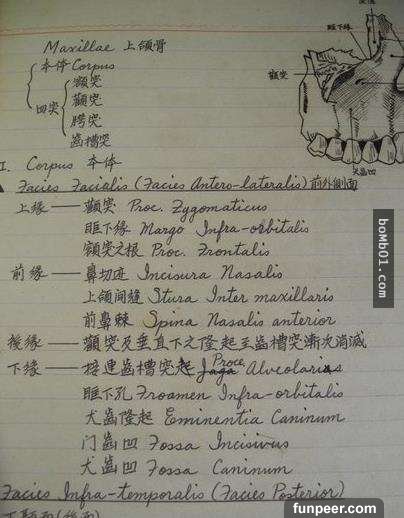 Maxillae 上颌骨
本体 Corpus
四突
额突
颧突
腭突
齒槽突
眶下缘
颧突
犬齒凹
I. Corpus 本体
Facies Facialis (Facies Antero-lateralis) 前外側面
上缘 — 颧突 Proc. Zygomaticus
眶下缘 Margo Infra-orbitalis
額突之根 Proc. Frontalis
前缘 — 鼻切迹 Incisura Nasalis
上颌间缝 Stura Inter maxillaris
前鼻棘 Spina Nasalis anterior
後缘 — 颧突及垂直下之隆起至齒槽突漸次消滅
下缘 — 接連齒槽突起 Proce Alveolaris
眶下孔 Froamen Infra-orbitalis
犬齒隆起 Eminentia Caninum
门齒凹 Fossa Incisivus
犬齒凹 Fossa Caninum
Facies Infra-temporalis (Facies Posterior)
bomb01.com
funpeer.com